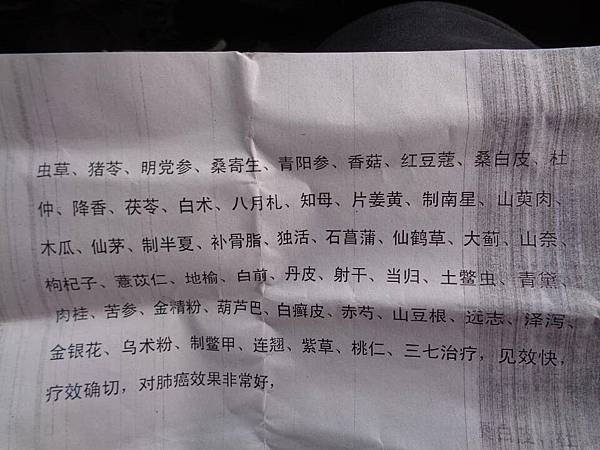 虫草、猪苓、明党参、桑寄生、青阳参、香菇、红豆蔻、桑白皮、杜
仲、降香、茯苓、白术、八月札、知母、片姜黄、制南星、山萸肉、
木瓜、仙茅、制半夏、补骨脂、独活、石菖蒲、仙鹤草、大蓟、山奈、
枸杞子、薏苡仁、地榆、白前、丹皮、射干、当归、土鳖虫、青黛、
肉桂、苦参、金精粉、葫芦巴、白癣皮、赤芍、山豆根、远志、泽泻、
金银花、乌术粉、制鳖甲、连翘、紫草、桃仁、三七治疗，见效快，
疗效确切，对肺癌效果非常好，